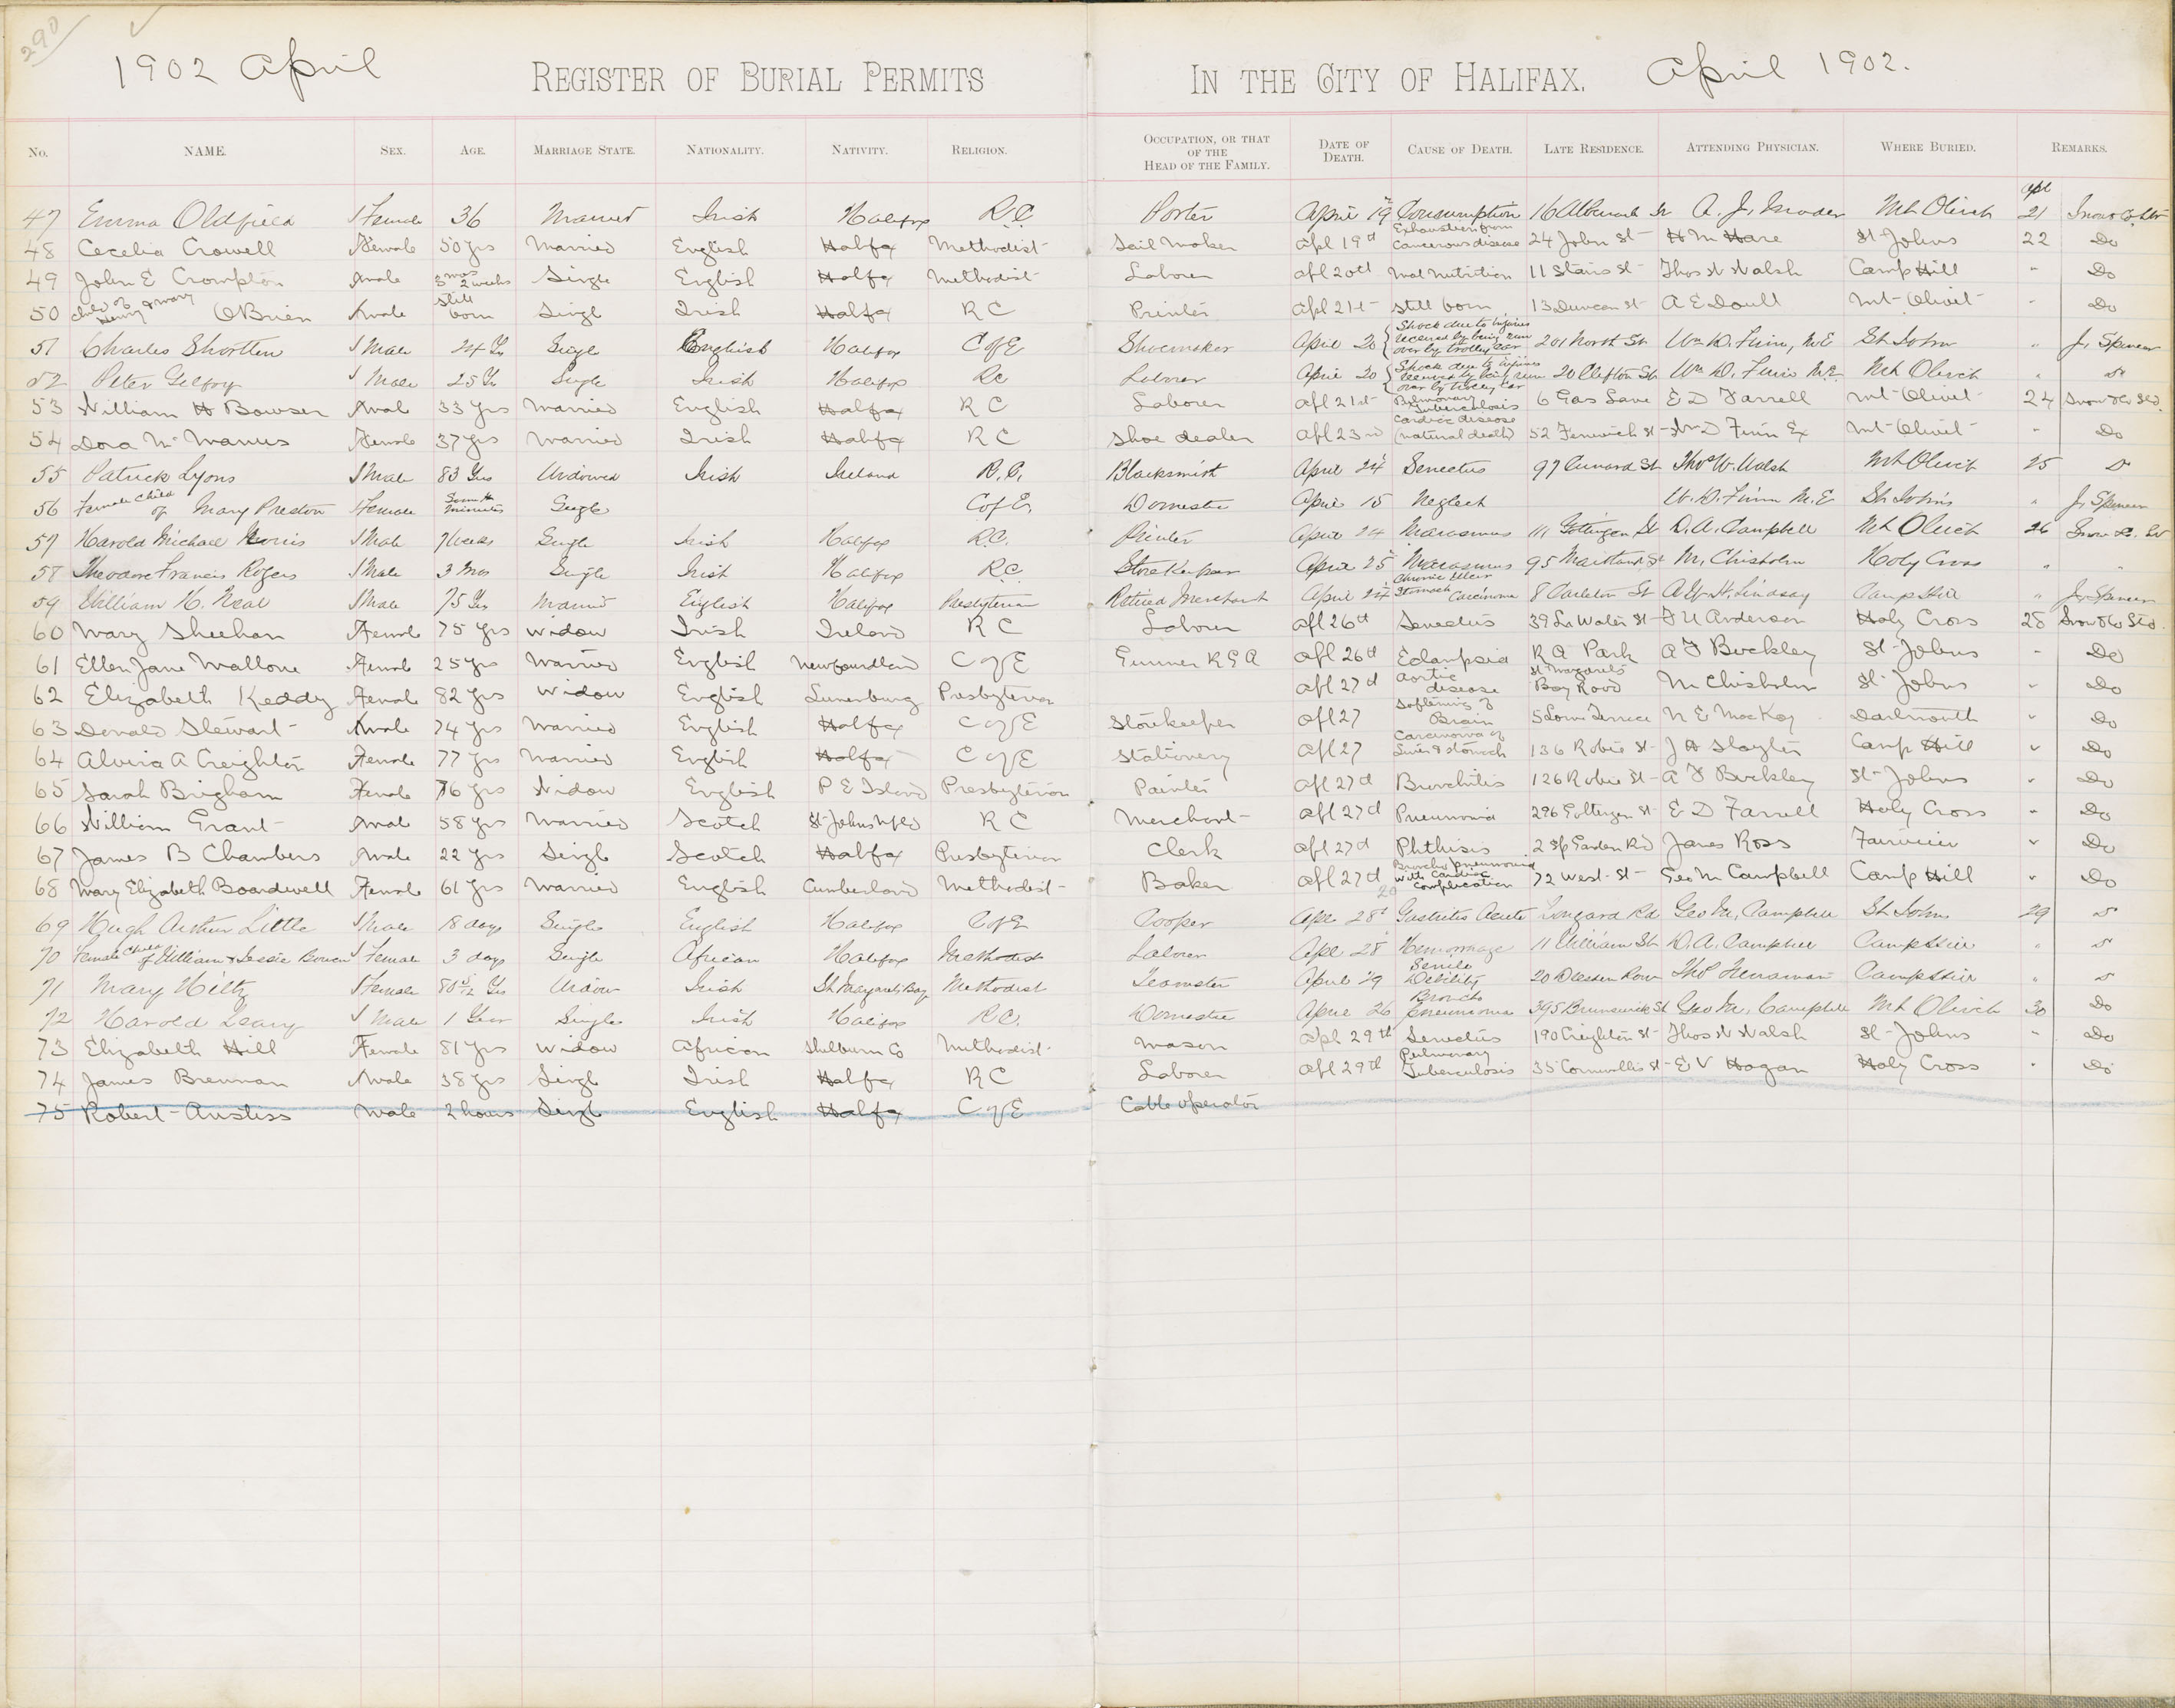 290
1902 April
REGISTER OF BURIAL PERMITS IN THE CITY OF HALIFAX.
April 1902.
No. NAME. SEX. AGE. MARRIAGE STATE. NATIONALITY. NATIVITY. RELIGION. OCCUPATION, OR THAT OF THE HEAD OF THE FAMILY. DATE OF DEATH. CAUSE OF DEATH. LATE RESIDENCE. ATTENDING PHYSICIAN. WHERE BURIED. REMARKS.
47 Emma Oldfield Female 36 Married Irish Halifax R.C. Porter April 19 Consumption 16 St A. J. Mader Mt Olivet Apl 21 Snow & Co
48 Cecelia Crowell Female 50 yrs Married English Halifax Methodist Sail Maker Apl 19th Exhaustion from Cancerous disease 24 John St H M Hare St Johns 22 Do
49 John E Crompton Male 3 mos 2 weeks Single English Halifax Methodist Laborer Apl 20th Mal nutrition 11 Stairs St Thos W Walsh Camp Hill " Do
50 child of Henry & Mary OBrien Male Still born Single Irish Halifax R C Printer Apl 21st Still born 13 Duncan St A E Doull Mt Olivet " Do
51 Charles Shortten Male 24 Yrs Single English Halifax C of E Shoemaker April 20 Shock due to injuries received by being run over by trolley car 201 North St Wm D. Finn, M.E St John " J. Spencer
52 Peter Gilfoy Male 25 Yrs Single Irish Halifax RC Laborer April 20 Shock due to injuries received by being run over by trolley car 20 Clifton St Wm D. Finn M.E. Mt Olivet " Do
53 William H Bowser Male 33 yrs Married English Halifax R C Laborer Apl 21st Pulmonary Tuberculosis 6 Gas Lane E D Farrell Mt Olivet 24 Snow & Co Ltd.
54 Dora McManus Female 37 yrs Married Irish Halifax R C Shoe dealer Apl 23rd Cardiac disease (natural death) 52 Fenwick St Wm D Finn Ex Mt Olivet " Do
55 Patrick Lyons Male 83 Yrs Widowed Irish Ireland R.C. Blacksmith April 24 Senectus 97 Cunard St Thos W. Walsh Mt Olivet 25 Do
56 Female child of Mary Preston Female Some minutes Single C of E. Domestic April 15 Neglect W. D. Finn M.E St Johns " J. Spencer
57 Harold Michael Norris Male 7 weeks Single Irish Halifax R.C. Printer April 24 Marasmus 111 Gottingen St D. A. Campbell Mt Olivet 26 Snow & Co. Ltd
58 Theodore Francis Rogers Male 3 Mos Single Irish Halifax R.C. Storekeeper April 25 Marasmus 95 Maitland St M. Chisholm Holy Cross " "
59 William H. Neal Male 75 Yrs Married English Halifax Presbyterian Retired Merchant April 24 Chronic Ulcer Stomach Carcinoma 8 Carleton St A. W. H. Lindsay Camp Hill " J. Spencer
60 Mary Sheehan Female 75 yrs Widow Irish Ireland R C Laborer Apl 26th Senectus 39 Lr Water St F U Anderson Holy Cross 28 Snow & Co Ltd.
61 Ellen Jane Mallone Female 25 yrs Married English Newfoundland C of E Gunner R G A Apl 26th Eclampsia R A Park A F Buckley St Johns " Do
62 Elizabeth Keddy Female 82 yrs Widow English Lunenburg Presbyterian Apl 27th Aortic disease St Margarets Bay Road M Chisholm St Johns " Do
63 Donald Stewart Male 74 yrs Married English Halifax C of E Storekeeper Apl 27 Softening of Brain 5 Lorne Terrace N E MacKay Dartmouth " Do
64 Alvira A Creighton Female 77 yrs Married English Halifax C of E Stationery Apl 27 Carcinoma of Liver & Stomach 136 Robie St J H Slayter Camp Hill " Do
65 Sarah Brigham Female 76 yrs Widow English P E Island Presbyterian Painter Apl 27th Bronchitis 126 Robie St A F Buckley St Johns " Do
66 William Grant Male 58 yrs Married Scotch St Johns Nfld R C Merchant Apl 27th Pneumonia 296 Gottingen St E D Farrell Holy Cross " Do
67 James B Chambers Male 22 yrs Single Scotch Halifax Presbyterian Clerk Apl 27th Phthisis 2 Sp Garden Rd James Ross Fairview " Do
68 Mary Elizabeth Boardwell Female 61 yrs Married English Cumberland Methodist Baker Apl 27th Broncho pneumonia with Cardiac complication 72 West St Geo M Campbell Camp Hill " Do
69 Hugh Arthur Little Male 18 days Single English Halifax C of E Cooper Apl 28 Gastritis Acute Longard Rd Geo M. Campbell St Johns 29 Do
70 Female child of William & Jessie Female 3 days Single African Halifax Methodist Laborer Apl 28 Hemorrhage 11 William St D. A. Campbell Camp Hill " Do
71 Mary Hiltz Female 80 5/12 Yrs Widow Irish St Margarets Bay Methodist Teamster April 29 Senile Debility 20 Row Thos Camp Hill " Do
72 Harold Leary Male 1 Year Single Irish Halifax R.C. Domestic April 26 Broncho pneumonia 395 Brunswick St Geo M. Campbell Mt Olivet 30 Do
73 Elizabeth Hill Female 81 yrs Widow African Shelburn Co Methodist Mason Apl 29th Senectus 190 Creighton St Thos W Walsh St Johns " Do
74 James Brennan Male 38 yrs Single Irish Halifax R C Laborer Apl 29th Pulmonary Tuberculosis 35 Cornwallis St E V Hogan Holy Cross " Do
75 Robert Anstiss Male 2 hours Single English Halifax C of E Cable operator